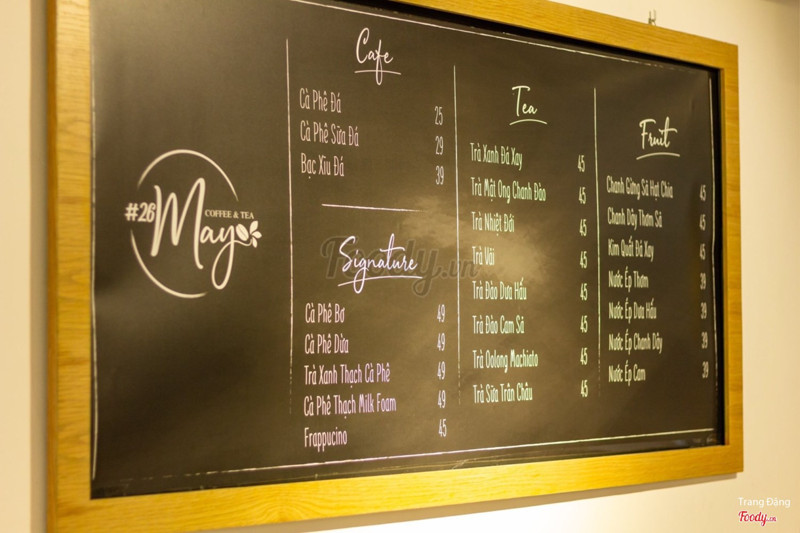 #26
May
COFFEE & TEA
Cafe
Cà Phê Đá 25
Cà Phê Sữa Đá 29
Bạc Xỉu Đá 39
Signature
Cà Phê Bơ 49
Cà Phê Dừa 49
Trà Xanh Thạch Cà Phê 49
Cà Phê Thạch Milk Foam 49
Frappucino 45
Tea
Trà Xanh Đá Xay 45
Trà Mật Ong Chanh Đào 45
Trà Nhiệt Đới 45
Trà Vải 45
Trà Đào Dưa Hấu 45
Trà Đào Cam Sả 45
Trà Oolong Machiato 45
Trà Sữa Trân Châu 45
Fruit
Chanh Gừng Sả Hạt Chia 45
Chanh Dây Thơm Sả 45
Kim Quất Đá Xay 45
Nước Ép Thơm 39
Nước Ép Dưa Hấu 39
Nước Ép Chanh Dây 39
Nước Ép Cam 39
Foody.vn
Trang Đặng
Foody.vn